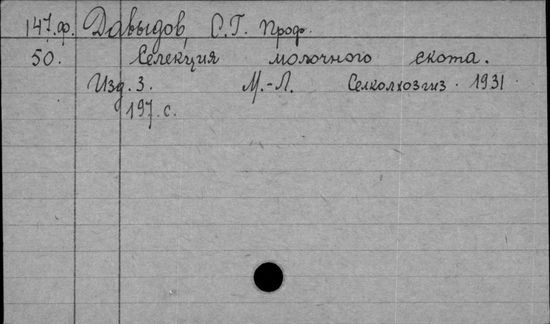 147.ф. Давыдов, С.Г. Проф.
50. Селекция молочного скота.
Изд. 3. М.-Л. Селколхозгиз. 1931
197. с.